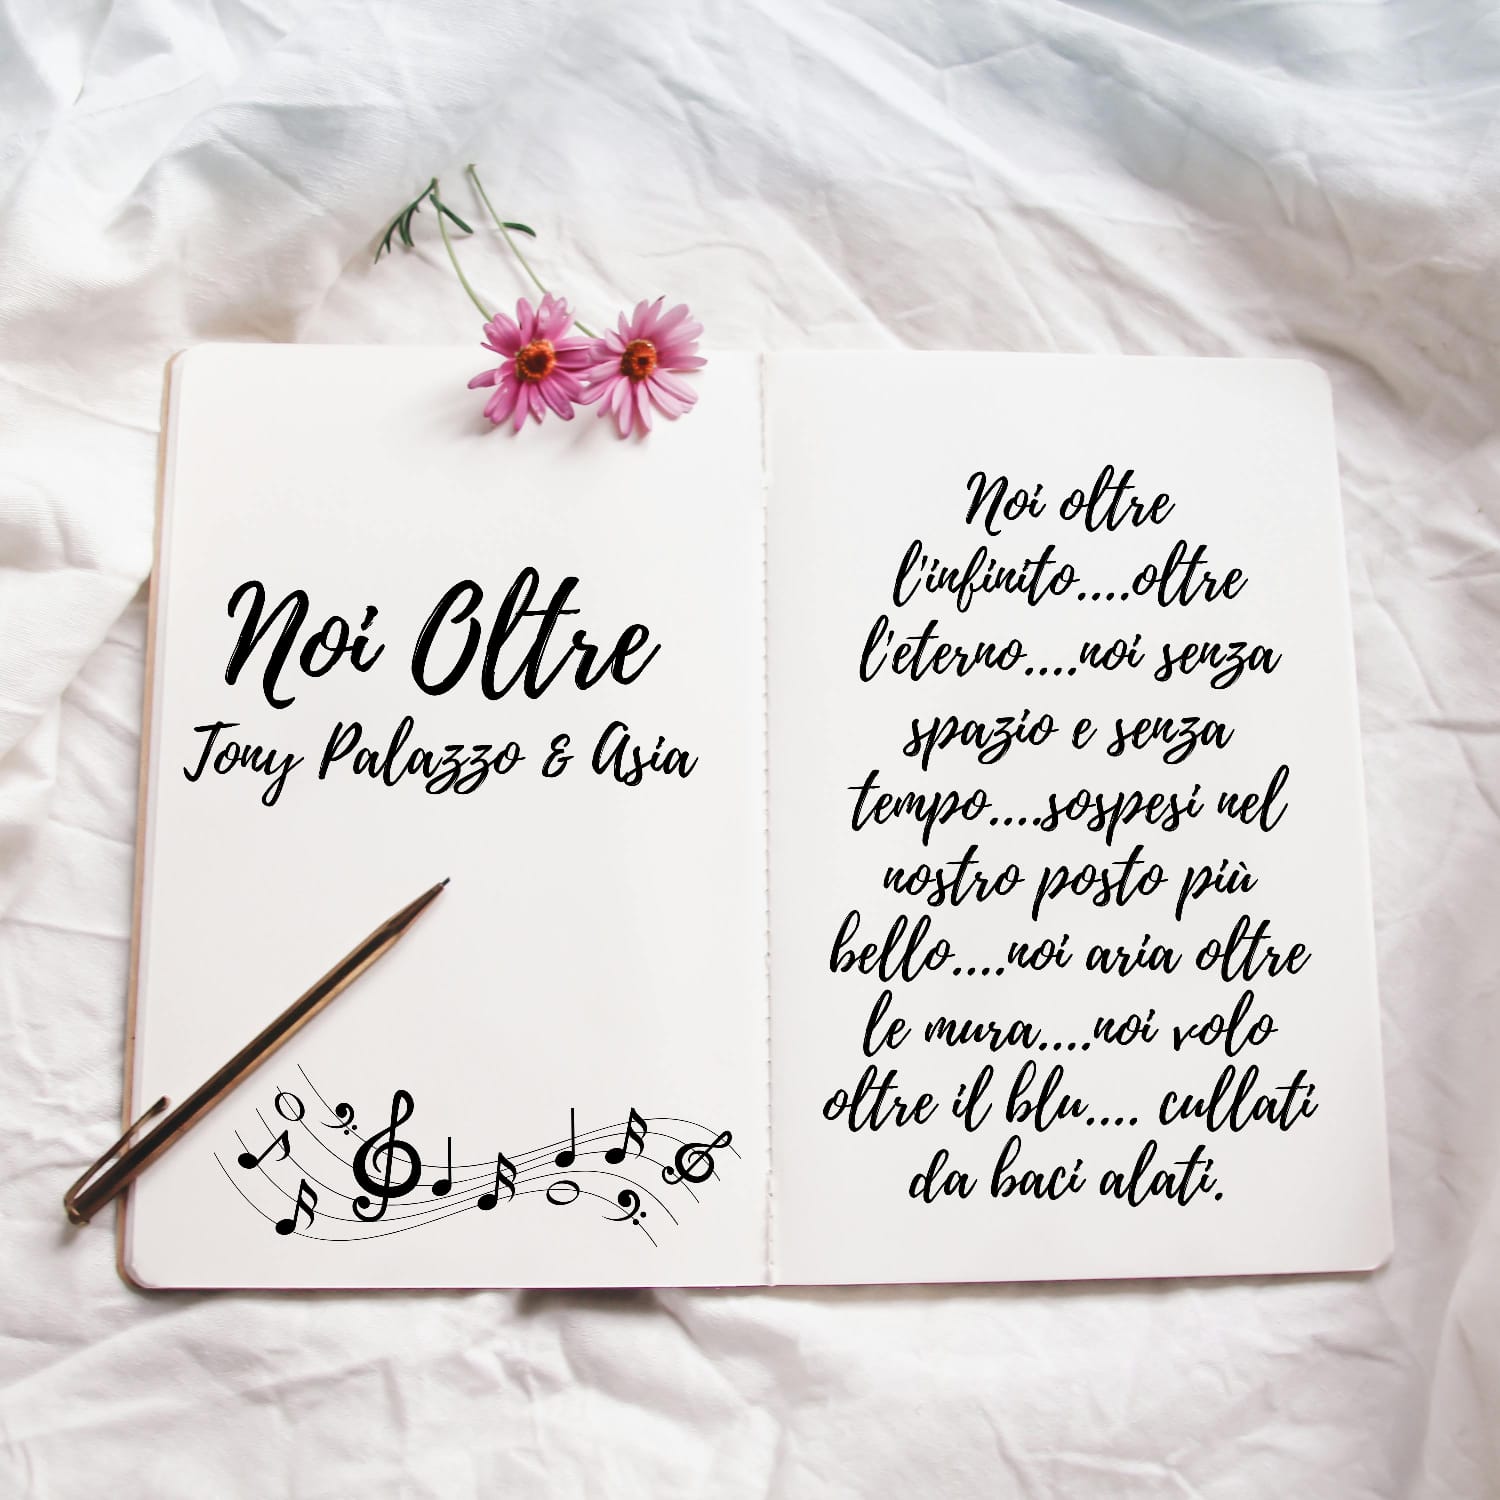 Noi Oltre
Tony Palazzo & Asia
Noi oltre
l'infinito....oltre
l'eterno....noi senza
spazio e senza
tempo....sospesi nel
nostro posto più
bello....noi aria oltre
le mura....noi volo
oltre il blu.... cullati
da baci alati.